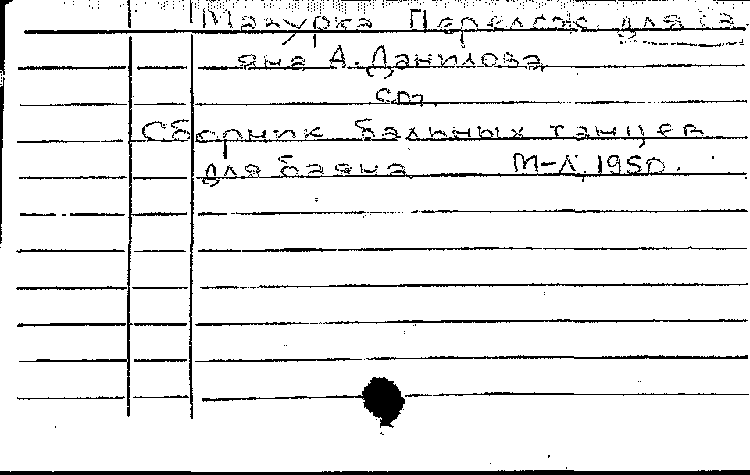 Мазурка Перелож. для ба
яна А. Данилова
Сп.
Сборник бальных танцев
для баяна М-Л, 1950.